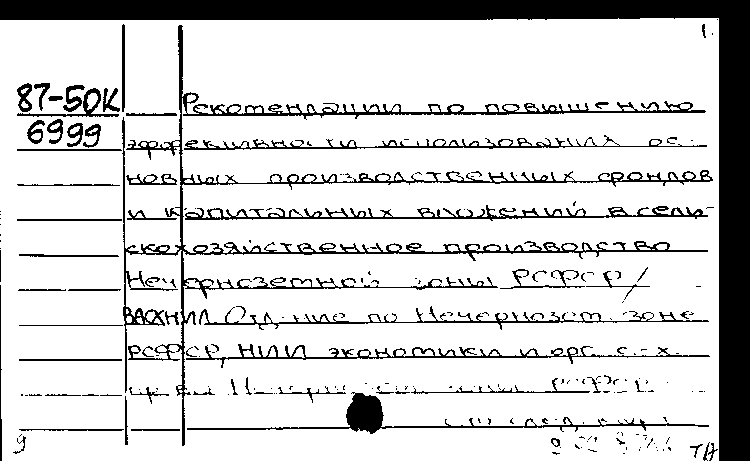 1.
87-50К
6999
Рекомендации по повышению
эффективности использования ос-
новных производственных фондов
и капитальных вложений в сель-
скохозяйственное производство
Нечерноземной зоны РСФСР/
ВАСХНИЛ. Отд-ние по Нечернозем. зоне
РСФСР, НИИ экономики и орг. с.-х.
пр-ва Нечернозем. зоны РСФСР.
см. след. карт.
9